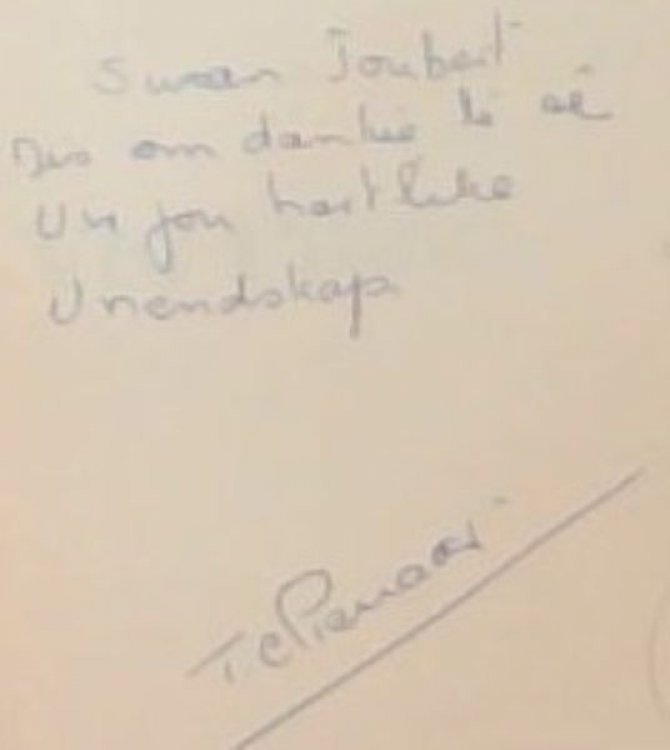 Susan Joubert
Dis om dankie te sê
Vir jou hartlike
Vriendskap
T C Pienaar